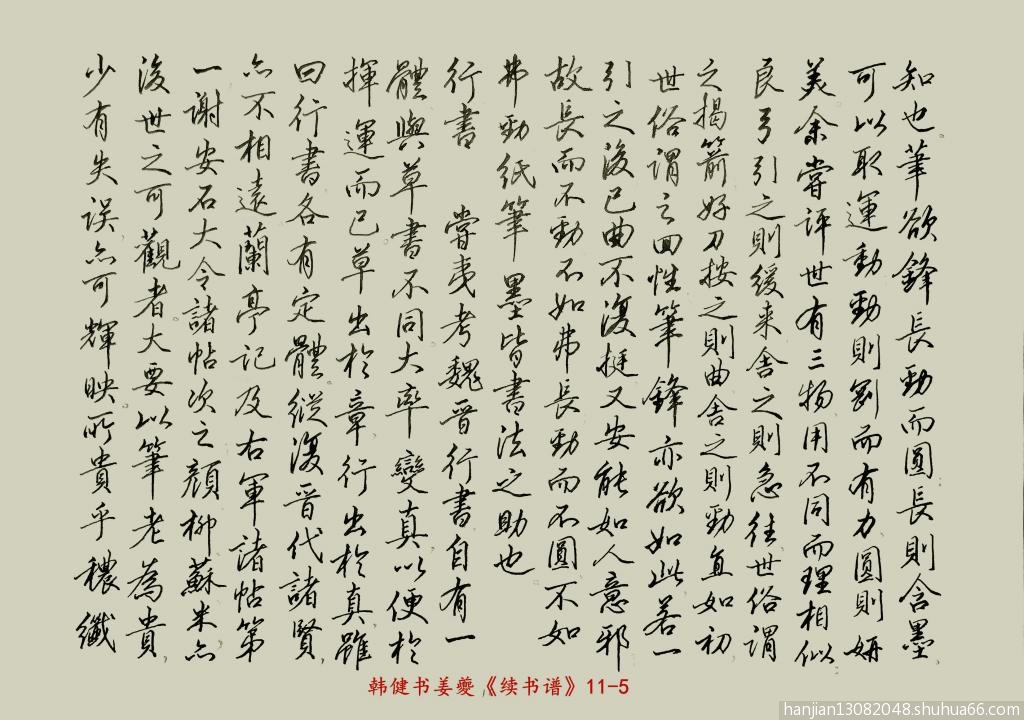 知也筆欲鋒長勁而圓長則含墨
可以取運動勁則剛而有力圓則妍
美余嘗評世有三物用不同而理相似
良弓引之則緩来舍之則急往世俗謂
之揭箭好刀按之則曲舍之則勁直如初
世俗謂之回性筆鋒亦欲如此若一
引之後已曲不復挺又安能如人意邪
故長而不勁不如弗長勁而不圓不如
弗勁紙筆墨皆書法之助也
行書 嘗夷考魏晉行書自有一
體與草書不同大率變真以便於
揮運而已草出於章行出於真雖
曰行書各有定體縱復晉代諸賢
亦不相遠蘭亭記及右軍諸帖第
一謝安石大令諸帖次之顏柳蘇米亦
後世之可觀者大要以筆老為貴
少有失误亦可輝映所貴乎穠纖
韩健书姜夔《续书谱》11-5
hanjian13082048.shuhua66.com